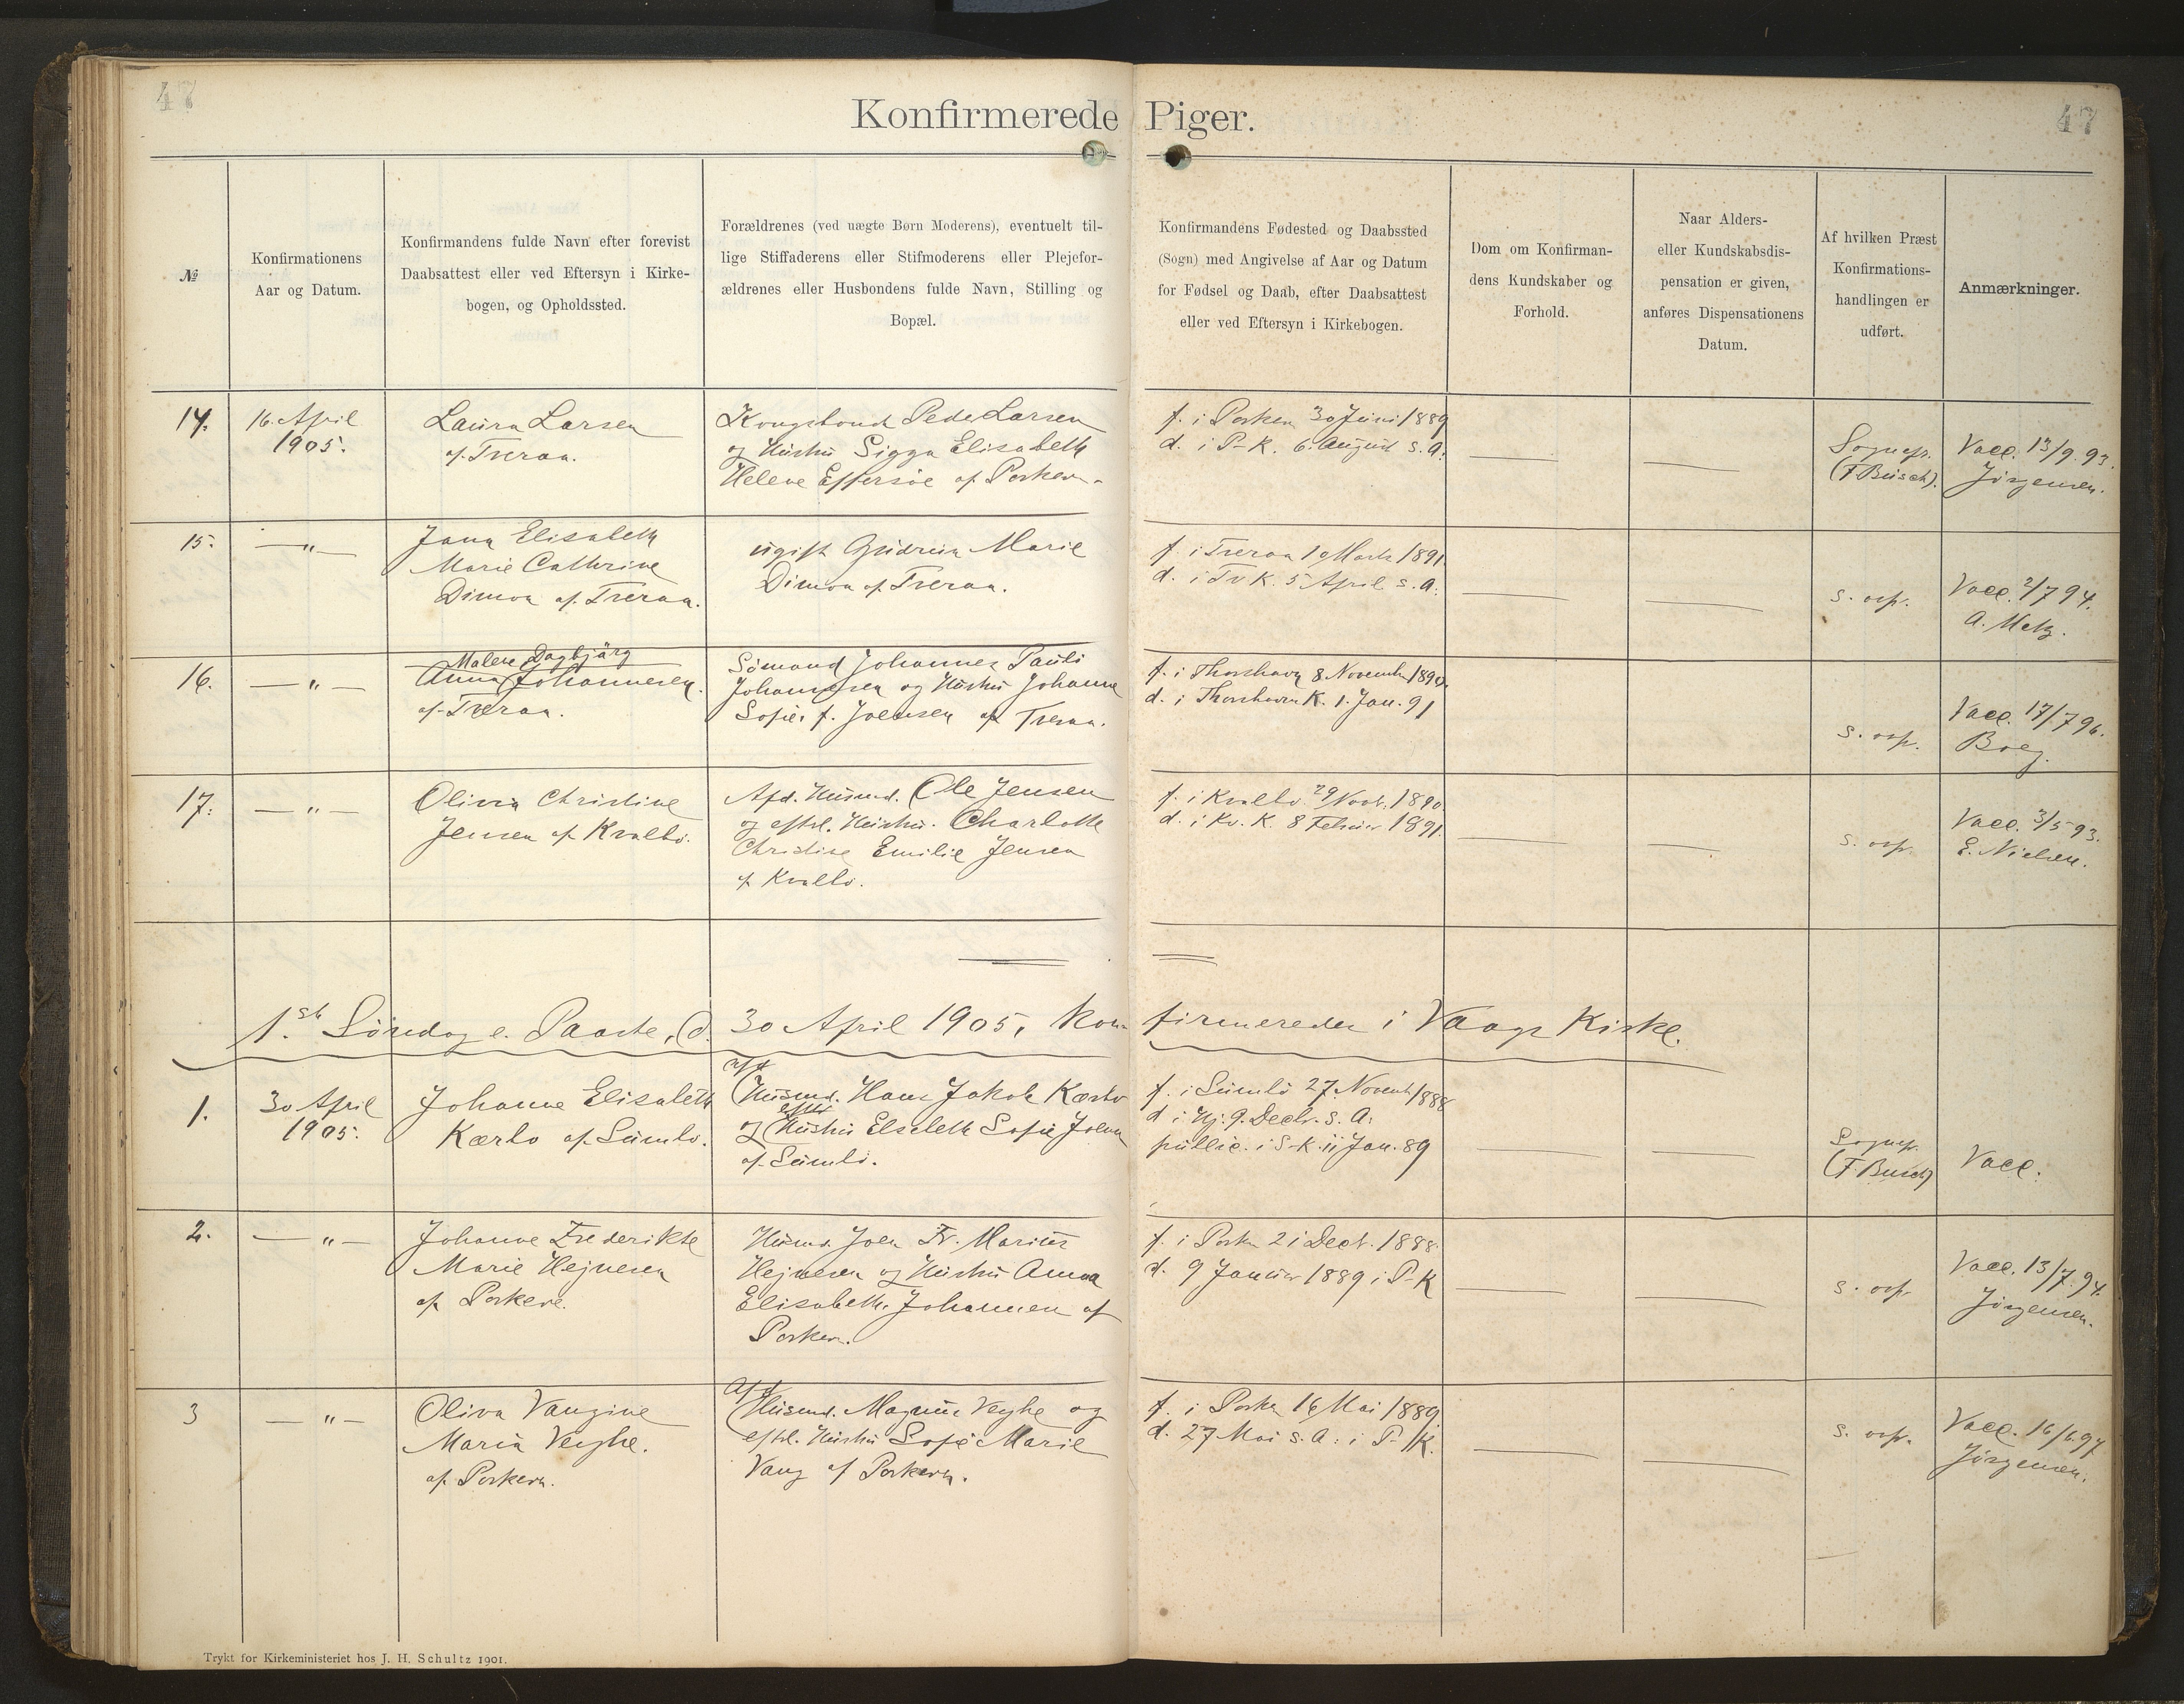 47
47
Konfirmerede Piger.
№
Konfirmationens
Aar og Datum.
Konfirmandens fulde Navn efter forevist
Daabsattest eller ved Eftersyn i Kirke-
bogen, og Opholdssted.
Forældrenes (ved uægte Børn Moderens), eventuelt til-
lige Stiffaderens eller Stifmoderens eller Plejefor-
ældrenes eller Husbondens fulde Navn, Stilling og
Bopæl.
Konfirmandens Fødested og Daabssted
(Sogn) med Angivelse af Aar og Datum
for Fødsel og Daab, efter Daabsattest
eller ved Eftersyn i Kirkebogen.
Dom om Konfirman-
dens Kundskaber og
Forhold.
Naar Alders-
eller Kundskabsdis-
pensation er given,
anføres Dispensationens
Datum.
Af hvilken Præst
Konfirmations-
handlingen er
udført.
Anmærkninger.
14.
16. April
1905.
Laura Larsen
af Tveraa.
Kongsbond Peder Larsen
og Hustru Sigga Elisabeth
Helene Effersøe af Porkere.
f. i Porkere 30 Juni 1889
d. i P-K. 6. August s. A.
Sognepr.
(F Busch).
Vacc. 13/9. 93.
Jörgensen.
15.
— " —
Elisabeth
Marie Cathrine
Dimon af Tveraa.
ugift Gudrun Marie
Dimon af Tveraa.
f. i Tveraa 1 Marts 1891.
d. i Tv K. 5 April s. A.
s. ovf.
Vacc. 2/7 94.
A. Metz.
16.
— " —
Malene Dagbjärg
Anna Johannesen.
af Tveraa.
Sömand Johannes Pauli
Johannesen og Hustru Johanne
Sofie f. Joensen af Tveraa.
f. i Thorshavn 8 November 1890.
d. i Thorshavn K. 1. Jan. 91
s. ovf.
Vacc. 17/7 96.
17.
— " —
Olivia Christine
Jensen af Kvalbö.
Afd. Husmd. Ole Jensen
og eftl. Hustru. Charlotte
Christine Emilie Jensen
af Kvalbö.
f. i Kvalbö 29 Novb. 1890.
d. i Kv. K. 8 Februar 1891.
s. ovf.
Vacc. 3/5 93.
E. Nielsen.
1.st Söndag e. Paaske, d. 30 April 1905, Kon firmereder i Vaags Kirke.
1.
30 April
1905.
Johanne Elisabeth
Kærbo af Sumbö.
afd
Husmd. Hans Jakob Kærbo
eftl.
og Hustru Elsebeth Sofie Joensen
af Sumbö.
f. i Sumbö 27. Novemb 1888
d i Hj. 9. Decbr. s. A.
public. i S-K. 11 Jan. 89
Sognepr.
(F Busch)
Vacc.
2.
— " —
Johanne Frederikke
Marie Hejnesen
af Porkere.
Husmd. Joen Fr. Marius
Hejnesen og Hustru Anna
Elisabeth Johannesen af
Porkere.
f. i Porkere 21 Decb. 1888.
d. 9 Januar 1889 i P-K
s. ovf.
Vacc. 13/7. 94.
Jörgensen.
3
— " —
Oliva Vangine
Maria Veyhe.
af Porkere.
Afd
Husmd. Magnus Veyhe og
eftl. Hustru Sofie Marie
Vang af Porkere.
f. i Porkere 16 Mai 1889
d. 27 Mai s. A. i P-K.
s. ovf.
Vacc. 16/6 97
Jörgensen.
Trykt for Kirkeministeriet hos J. H. Schultz 1901.